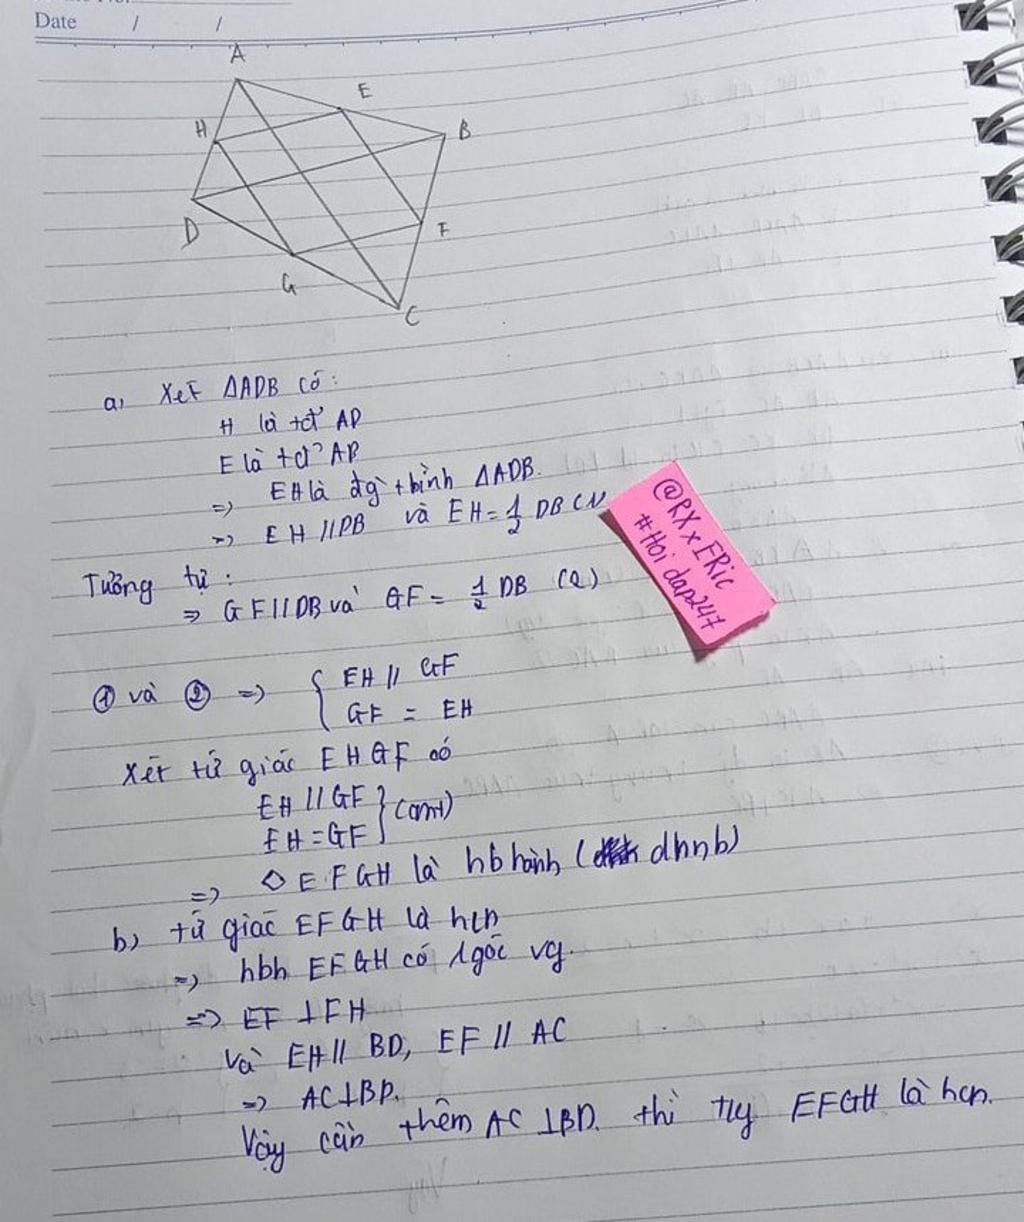 Date / /
A
E
H
B
D
F
G
C
a, Xét ΔADB có:
H là tđ' AD
E là tđ' AB
=) EH là đg` tbình ΔADB.
=) EH // DB và EH = 1/2 DB (1)
Tương tự :
=> GF // DB và GF = 1/2 DB (2)
① và ② =) { EH // GF
GF = EH
Xét tứ giác EHGF có
EH // GF } (cmt)
EH = GF
=) ◇ EFGH là hbhành ( dhnb)
b, tứ giác EFGH là hcn
=) hbh EFGH có 1 góc vg.
=> EF ⊥ FH
Và EH // BD, EF // AC
=) AC ⊥ BD.
Vậy cần thêm AC ⊥ BD. thì tg EFGH là hcn.
@RX x ERic
#Hoi dap247